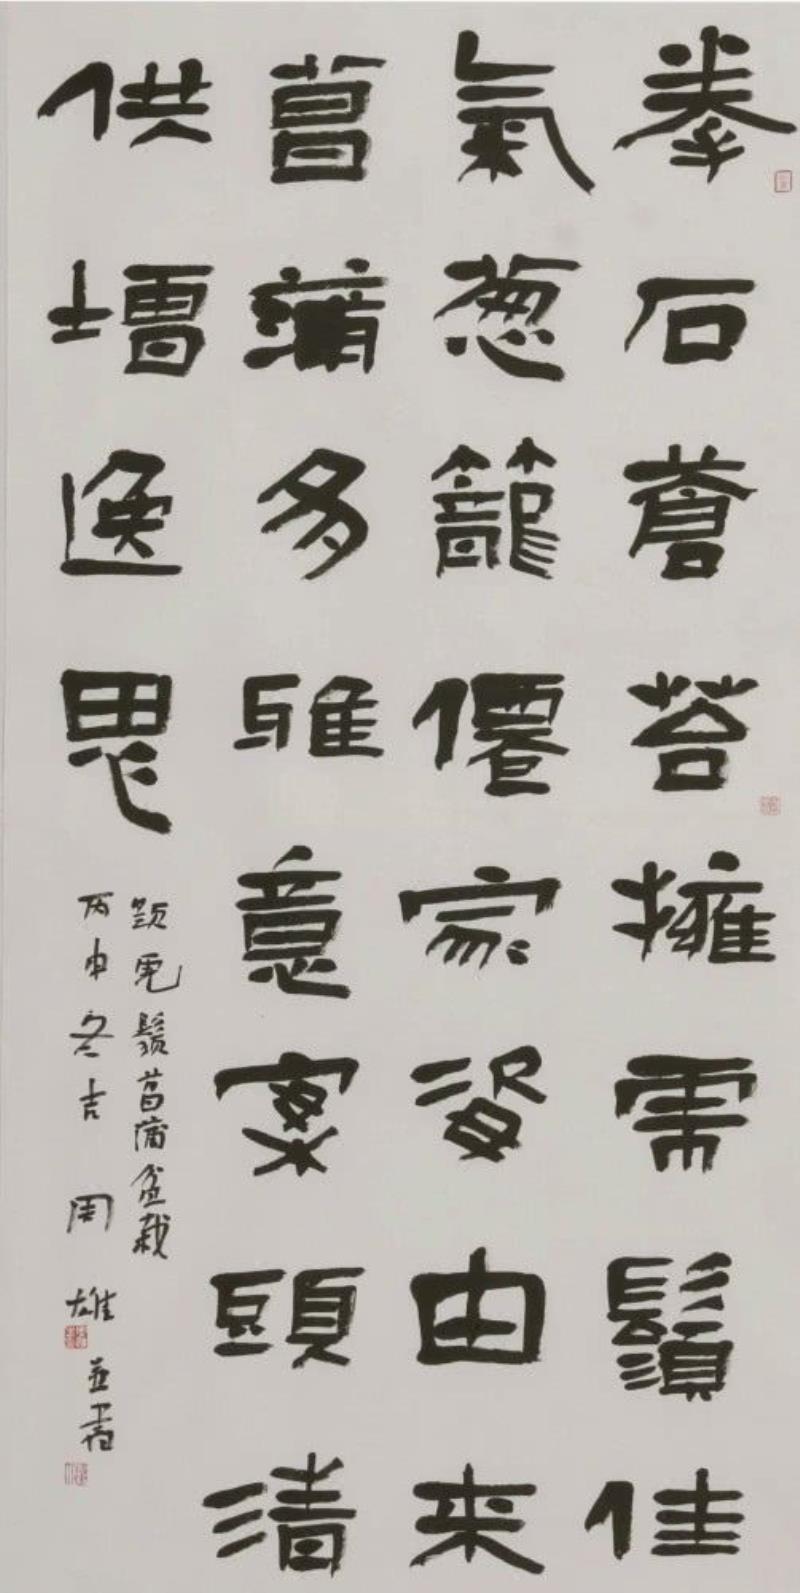 拳石蒼苔擁虎鬚佳
氣葱籠僊家姿由来
菖蒲多雅意案頭清
供增逸思
題虎鬚菖蒲盆栽
丙申冬吉 周雄並書